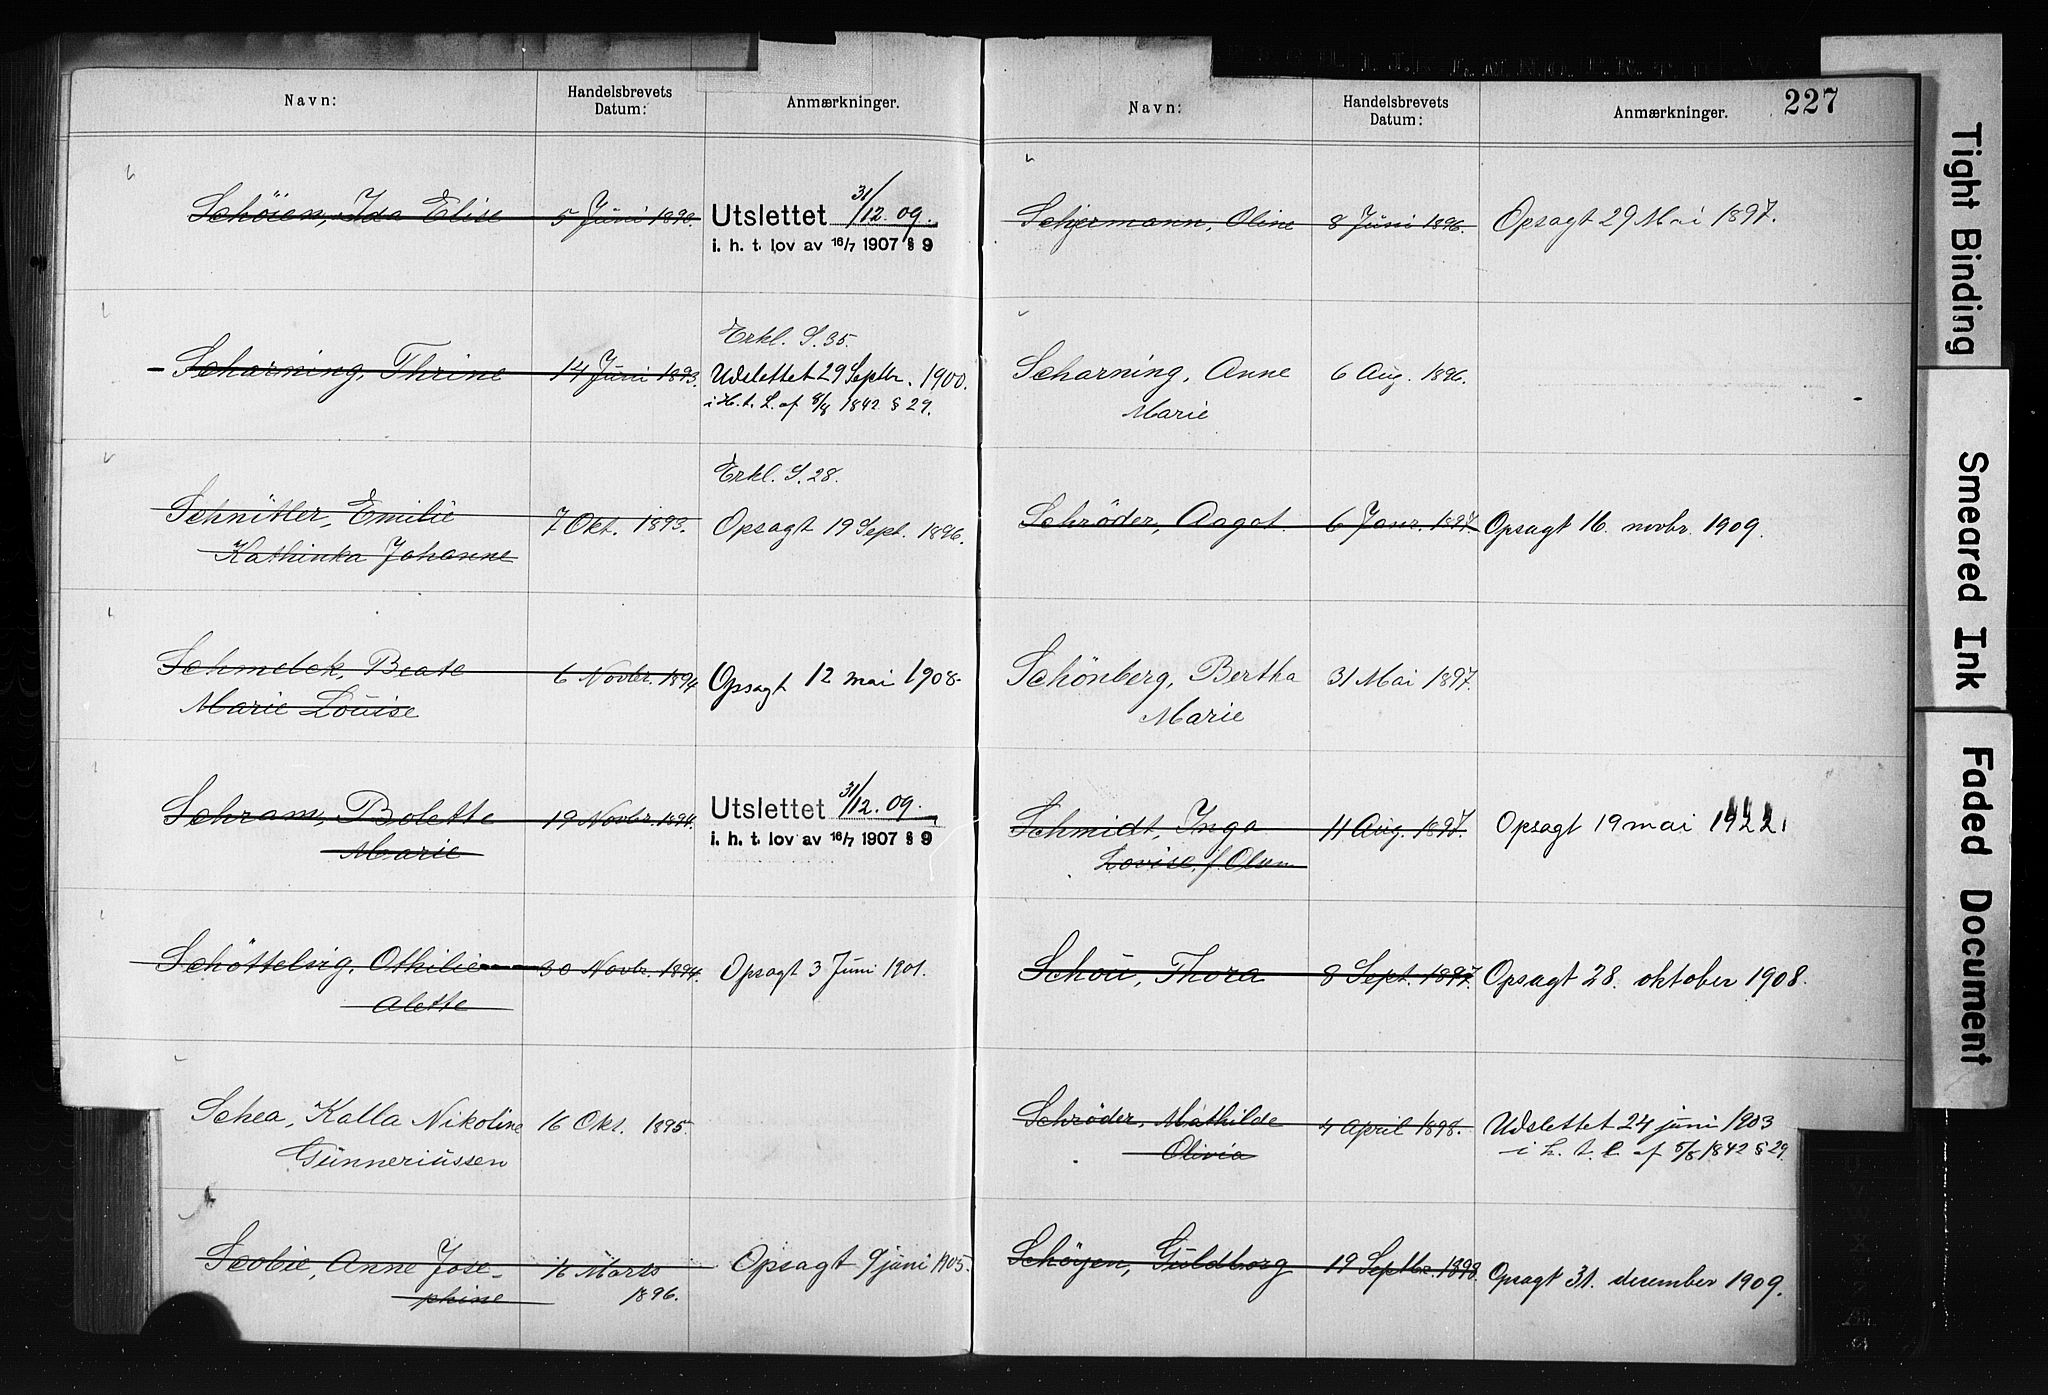 Navn:
Handelsbrevets
Datum:
Anmærkninger.
Schöien, Ida Elise
5 Juni 1890.
Utslettet 31/12.09.
i. h. t. lov av 16/7 1907 § 9
Erkl. S. 35.
Scharning, Thrine
14 Juni 1893.
Udslettet 29 Septbr. 1900.
i H. t. L. af 8/8 1842 § 29.
Erkl. S. 28.
Schnitler, Emilie
7 Okt. 1893.
Opsagt 19 Sept. 1896.
Kathinka Johanne
Schmelck, Beate
6 Novbr. 1894
Opsagt 12 mai 1908.
Marie Louise
Schram, Bolette
19 Novbr. 1894.
Utslettet 31/12.09.
Marie
i. h. t. lov av 16/7 1907 § 9
Schöttelvig, Othilie
30 Novbr. 1894.
Opsagt 3 Juni 1901.
Alette
Schea, Kalla Nikoline
16 Okt. 1895
Gunneriussen
Scobie, Anne Jose-
16 Marts
Opsagt 9 juni 1905.
phine
1896.
227
Navn:
Handelsbrevets
Datum:
Anmærkninger.
Schjermann, Oline
8 Juni 1896.
Opsagt 29 Mai 1897.
Scharning, Anne
6 Aug. 1896.
Marie
Schrøder, Aagot
6 Janr. 1897.
Opsagt 16. novbr. 1909.
Schönberg, Bertha
31 Mai 1897.
Marie
Schmidt, Inga
11 Aug. 1897.
Opsagt 19 mai 1922.
Lovise, f. Olum
Schou, Thora
8 Sept. 1897.
Opsagt 28. oktober 1908.
Schrøder, Mathilde
4 April 1898.
Udslettet 24 juni 1903
Olivia
i h. t. l. af 8/8 1842 § 29.
Schöyen, Guldborg
19 Septbr. 1898.
Opsagt 31. december 1909.
Tight Binding
Smeared Ink
Faded Document